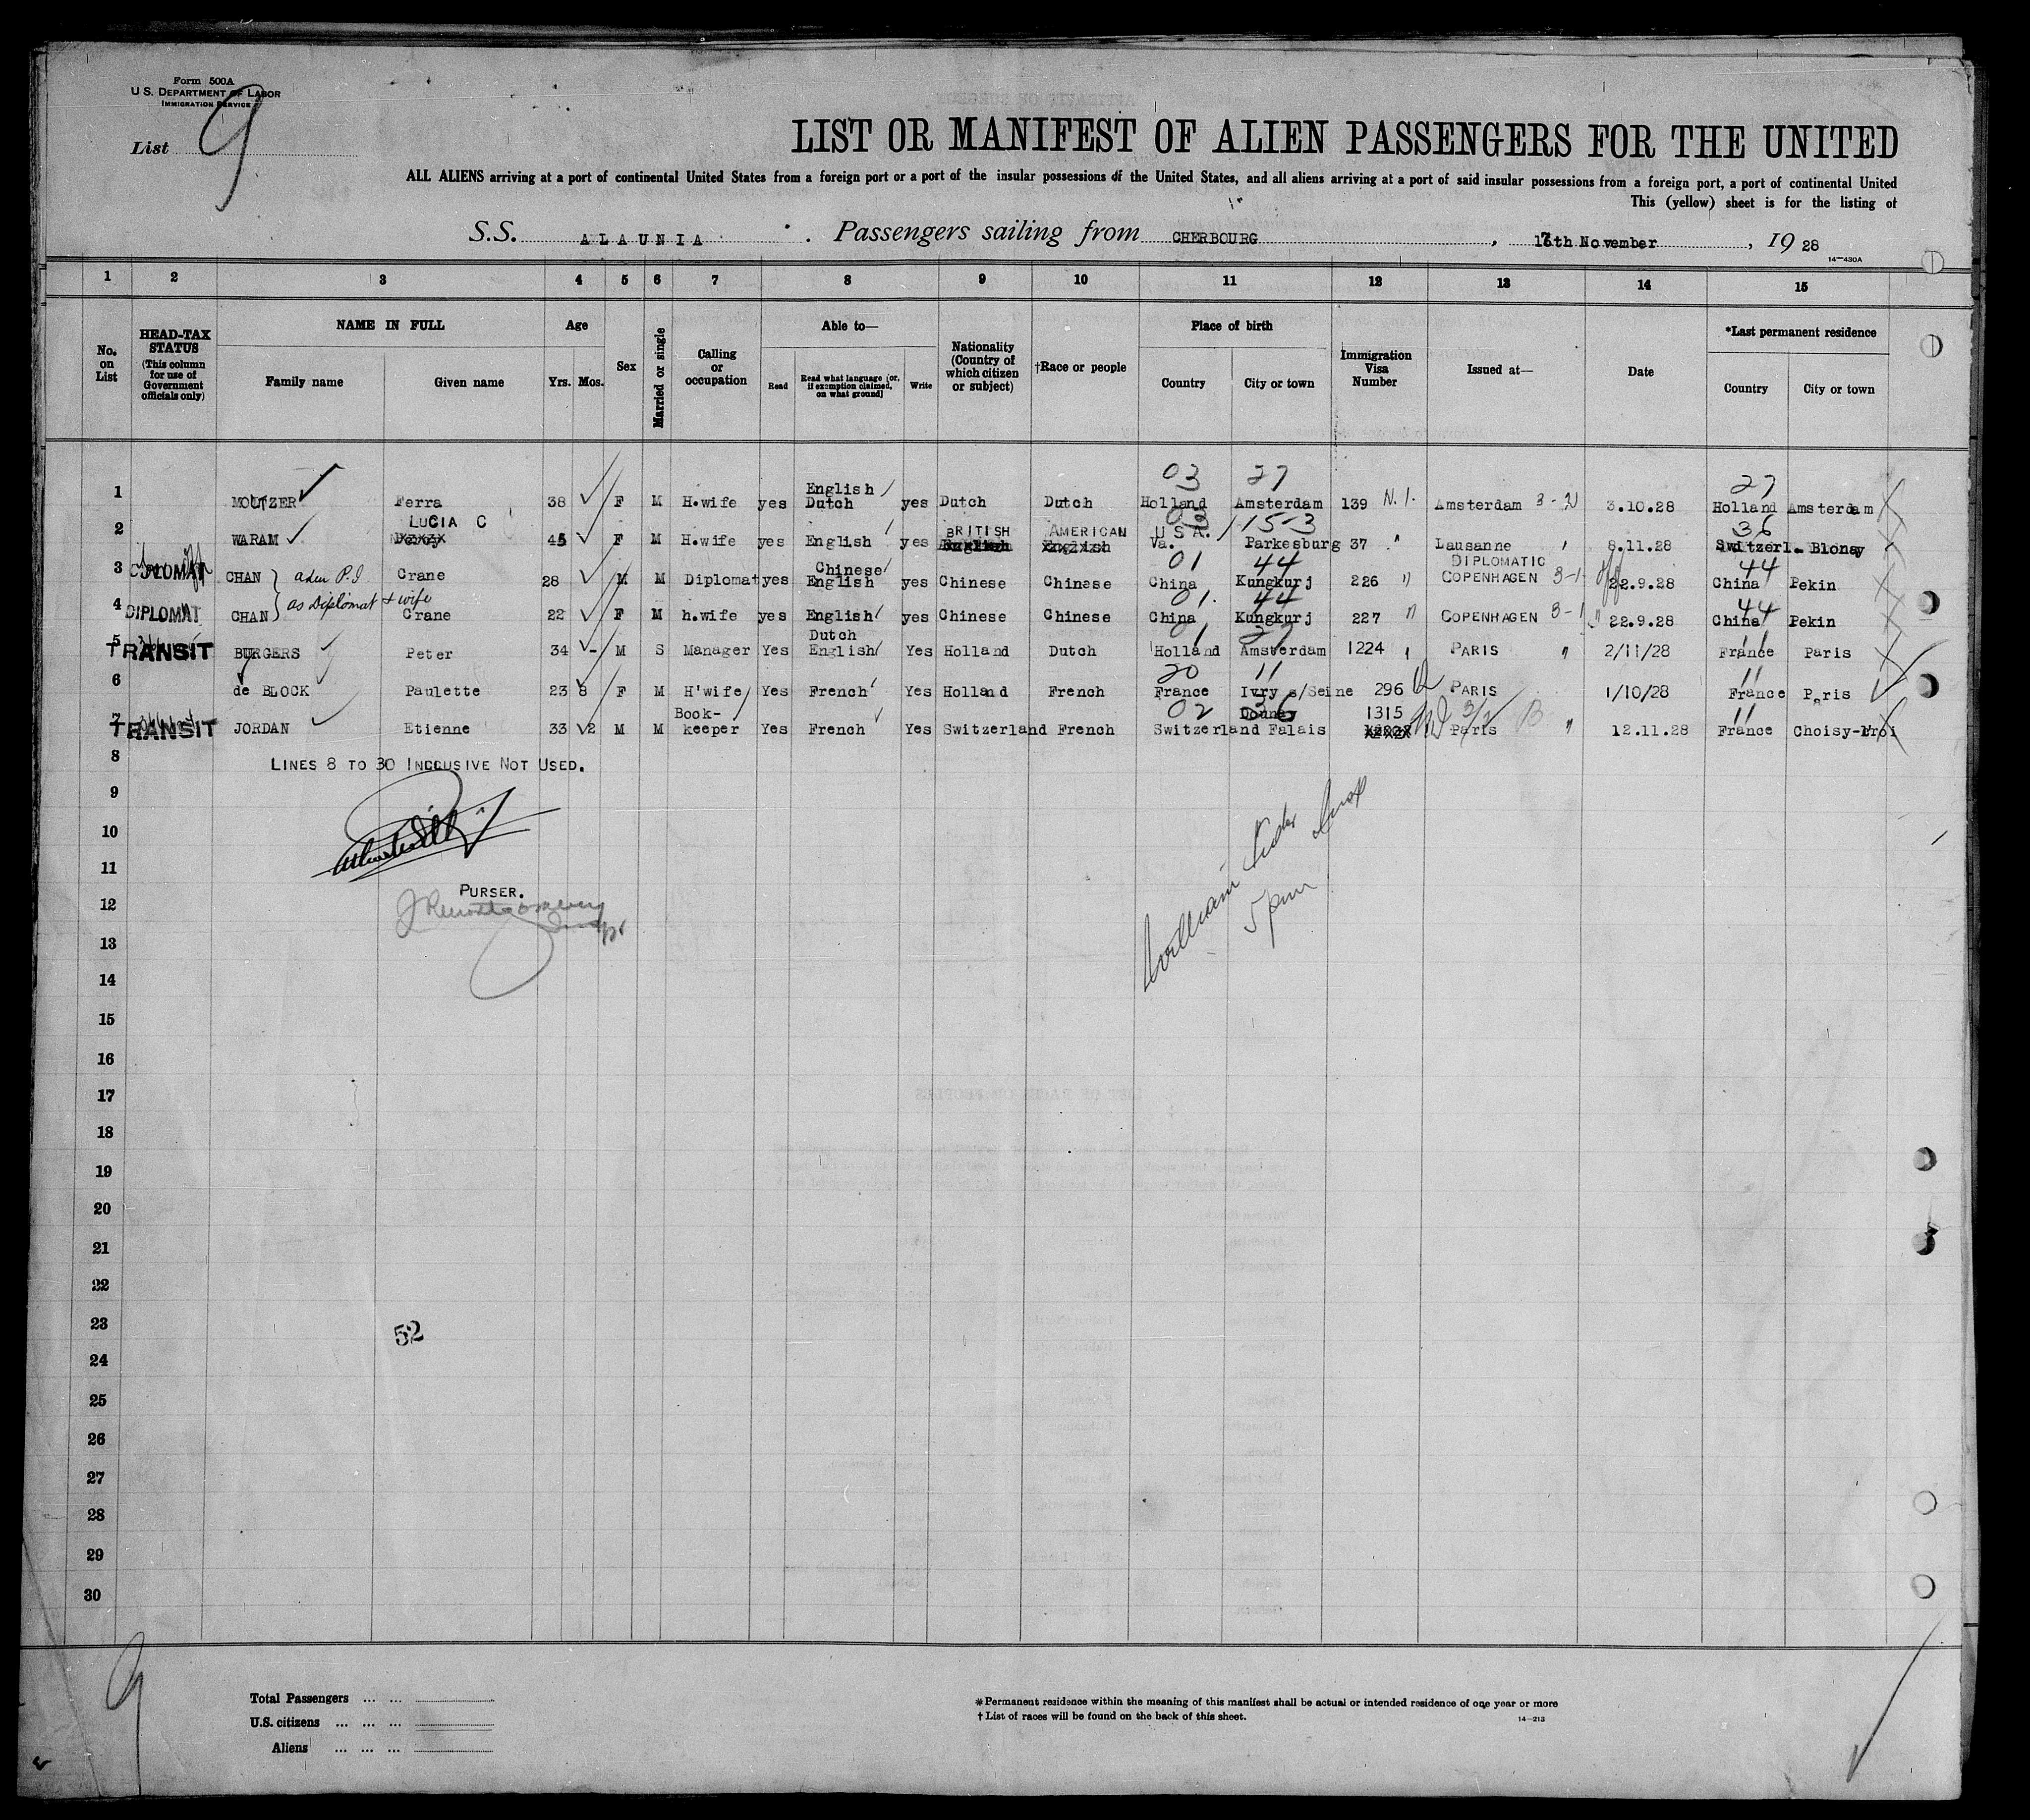 Form 500A
U.S. DEPARTMENT OF LABOR
IMMIGRATION SERVICE
List 9
LIST OR MANIFEST OF ALIEN PASSENGERS FOR THE UNITED
ALL ALIENS arriving at a port of continental United States from a foreign port or a port of the insular possessions of the United States, and all aliens arriving at a port of said insular possessions from a foreign port, a port of continental United
This (yellow) sheet is for the listing of
S.S. ALAUNIA . Passengers sailing from CHERBOURG , 17th November , 1928
14—430A
1 2 3 4 5 6 7 8 9 10 11 12 13 14 15
No. on List
HEAD-TAX STATUS (This column for use of Government officials only)
NAME IN FULL
Family name Given name
Age
Yrs. Mos.
Sex
Married or single
Calling or occupation
Able to—
Read Read what language [or, if exemption claimed, on what ground] Write
Nationality (Country of which citizen or subject)
†Race or people
Place of birth
Country City or town
Immigration Visa Number
Issued at—
Date
*Last permanent residence
Country City or town
03 27 27
1 MOUTZER Ferra 38 F M H.wife yes English Dutch yes Dutch Dutch Holland Amsterdam 139 N.I. Amsterdam 3-2 3.10.28 Holland Amsterdam
03 15-3 36
2 WARAM LUCIA C 45 F M H.wife yes English yes BRITISH AMERICAN U S A. Va. Parkesburg 37 " Lausanne 8.11.28 Switzerl. Blonay
01 44 44
3 DIPLOMAT CHAN Crane 28 M M Diplomat yes Chinese English yes Chinese Chinese China Kungkurj 226 " DIPLOMATIC COPENHAGEN 3-1 22.9.28 China Pekin
adm P.I
as Diplomat & wife
01 44 44
4 DIPLOMAT CHAN Crane 22 F M h.wife yes English yes Chinese Chinese China Kungkurj 227 " COPENHAGEN 3-1 " 22.9.28 China Pekin
01 27 11
5 TRANSIT BURGERS Peter 34 - M S Manager Yes Dutch English Yes Holland Dutch Holland Amsterdam 1224 " PARIS " 2/11/28 France Paris
20 11 11
6 de BLOCK Paulette 23 8 F M H'wife Yes French Yes Holland French France Ivry s/Seine 296 PARIS 1/10/28 France Paris
02 36 11
7 TRANSIT JORDAN Etienne 33 2 M M Book-keeper Yes French Yes Switzerland French Switzerland Falais 1315 Paris " 12.11.28 France Choisy-lroi
8 LINES 8 TO 30 INCCUSIVE NOT USED.
9
10
11
PURSER.
12
13
14
William
5 pm
15
16
17
18
19
20
21
22
23
52
24
25
26
27
28
29
30
9
Total Passengers ... ...
U.S. citizens ... ... ...
Aliens ... ... ...
*Permanent residence within the meaning of this manifest shall be actual or intended residence of one year or more
†List of races will be found on the back of this sheet.
14—213